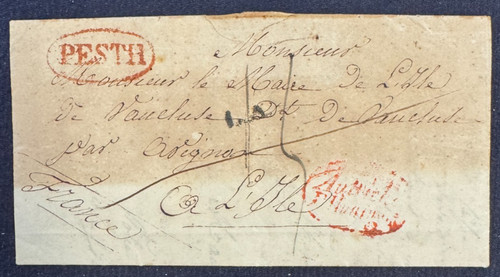 PESTH
Monsieur
Monsieur le Maire de L'Isle
de Vaucluse Dt. de Vaucluse
par Avignon
France
a L'Isle